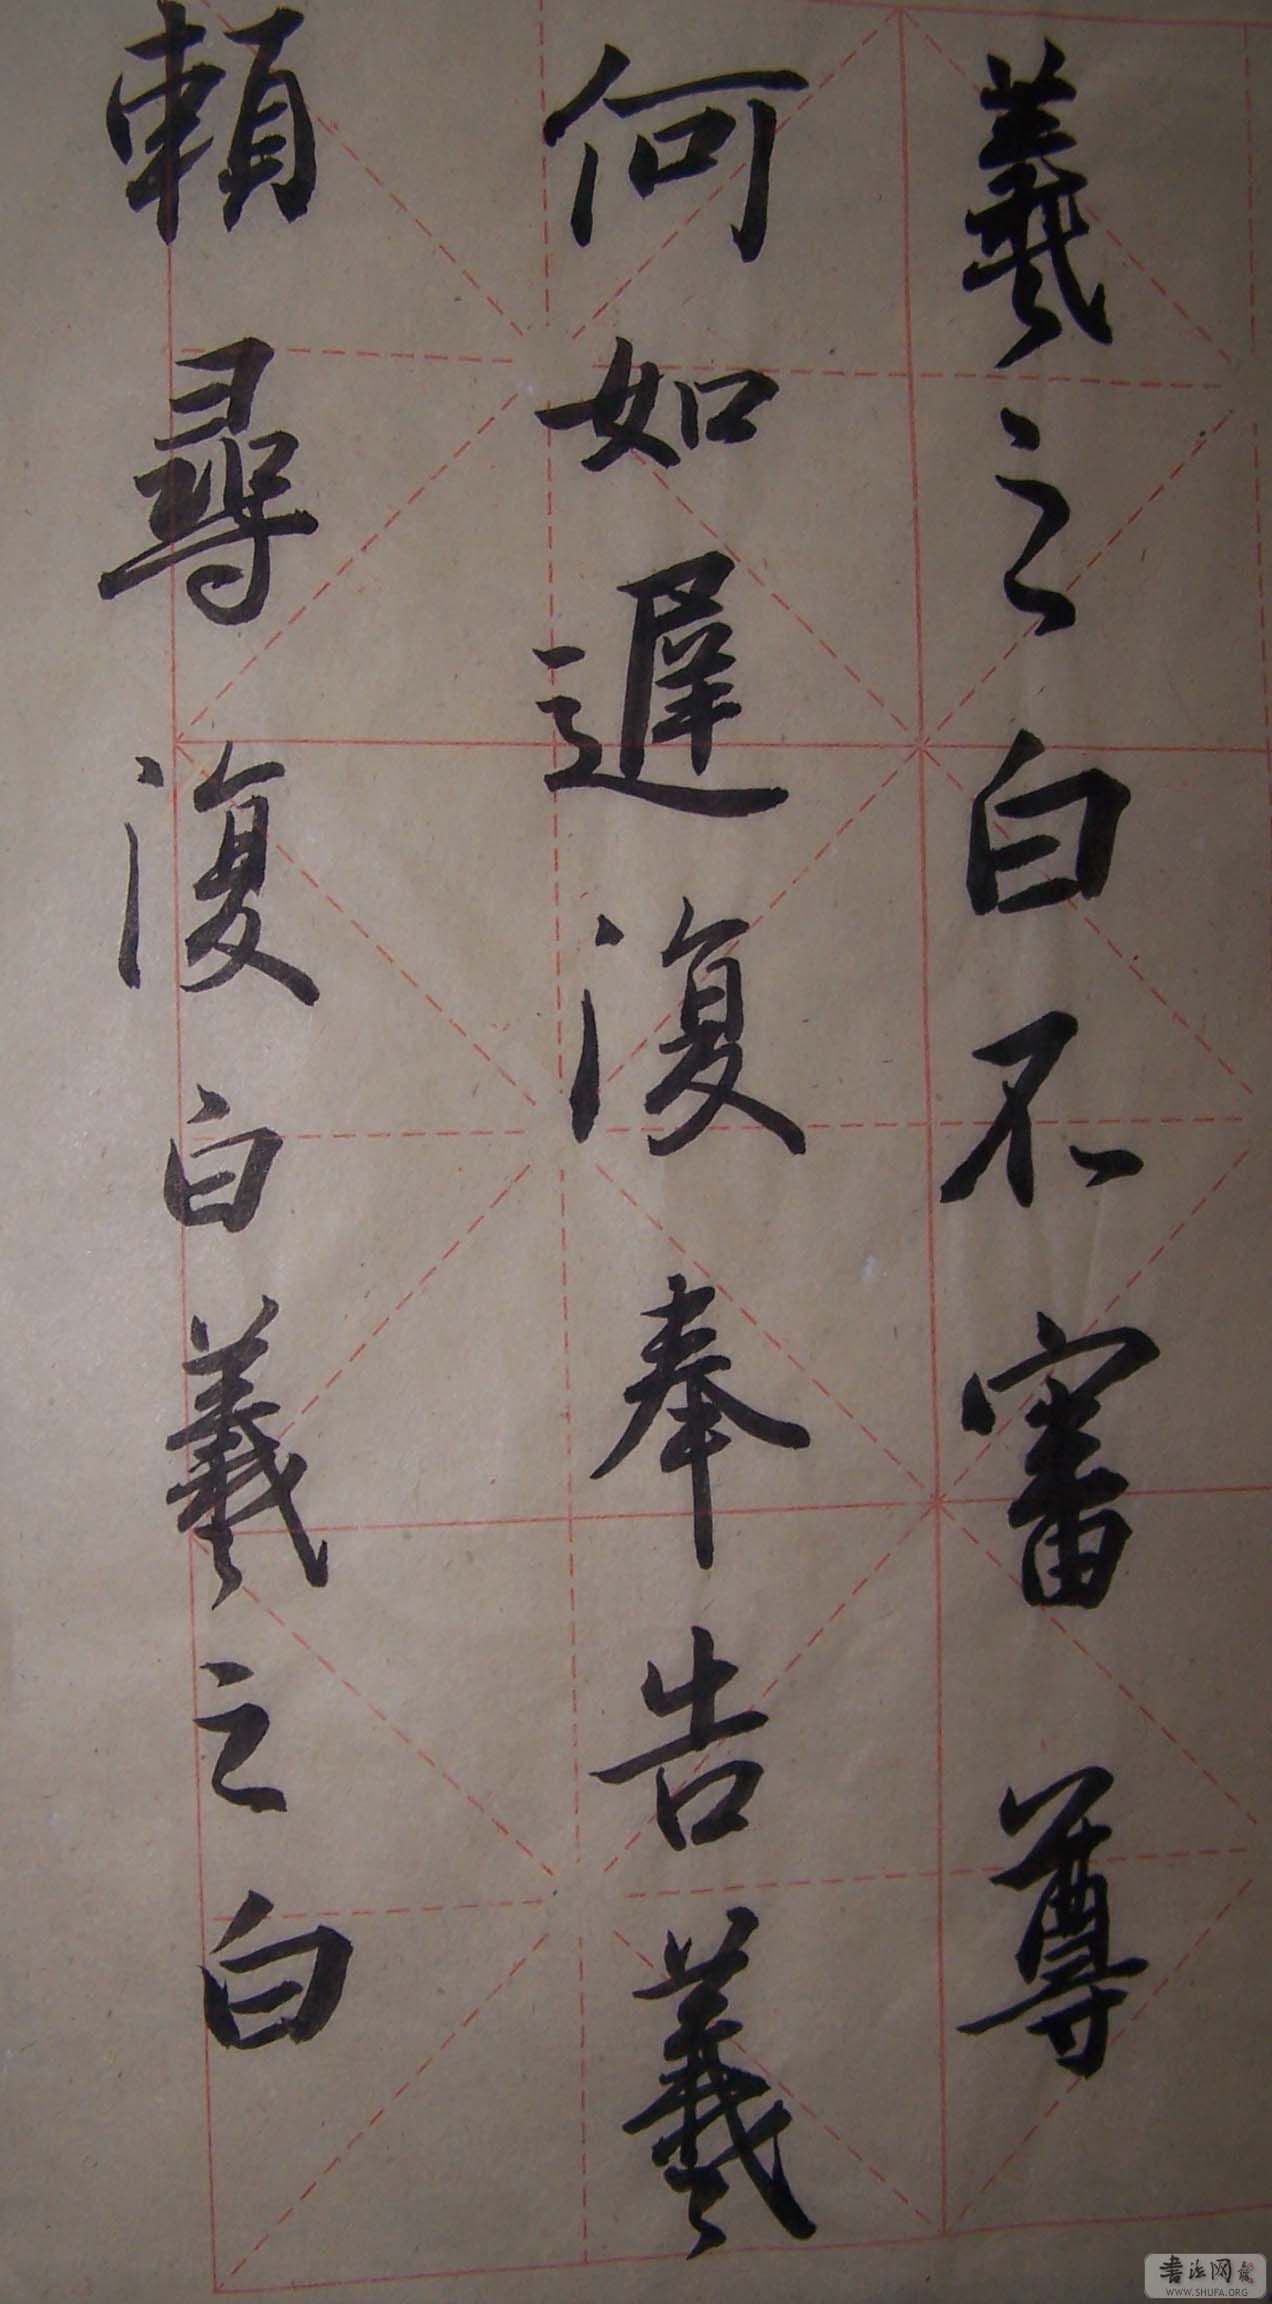 羲之白不審尊
何如遲復奉告羲
頼尋復白羲之白
書法网
WWW.SHUFA.ORG